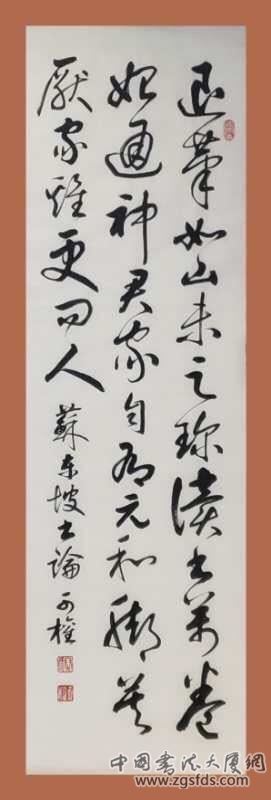 退筆如山未足珍讀書萬卷
始通神君家自有元和腳莫
厭家雞更問人 蘇東坡書論
中國書法大厦網
www.zgsfds.com